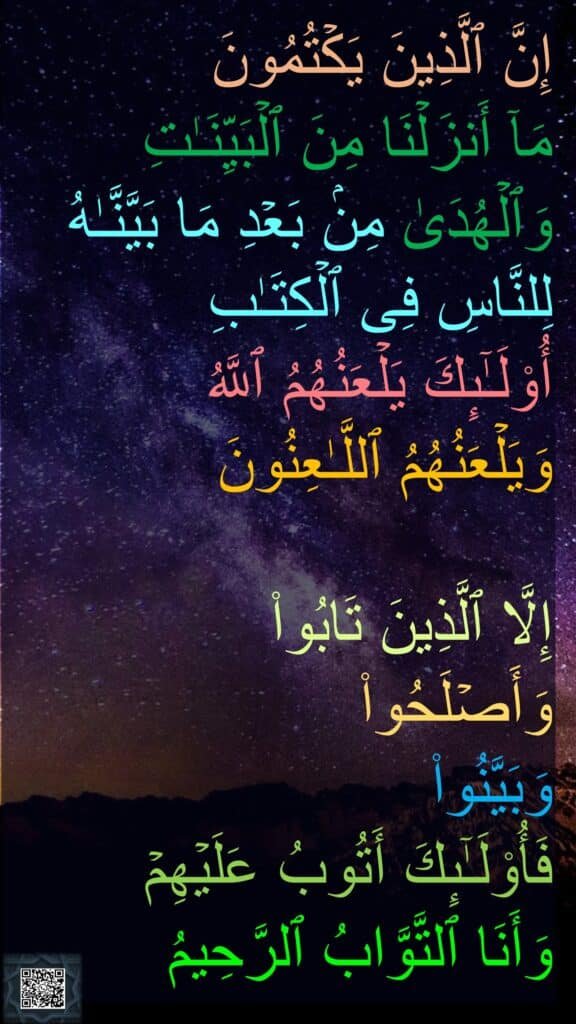 إِنَّ ٱلَّذِينَ يَكْتُمُونَ
مَآ أَنزَلْنَا مِنَ ٱلْبَيِّنَـٰتِ
وَٱلْهُدَىٰ مِنۢ بَعْدِ مَا بَيَّنَّـٰهُ
لِلنَّاسِ فِى ٱلْكِتَـٰبِ
أُو۟لَـٰٓئِكَ يَلْعَنُهُمُ ٱللَّهُ
وَيَلْعَنُهُمُ ٱللَّـٰعِنُونَ
إِلَّا ٱلَّذِينَ تَابُوا۟
وَأَصْلَحُوا۟
وَبَيَّنُوا۟
فَأُو۟لَـٰٓئِكَ أَتُوبُ عَلَيْهِمْ
وَأَنَا ٱلتَّوَّابُ ٱلرَّحِيمُ